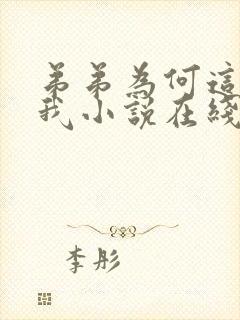 弟弟為何這
我小說在綫
李彤